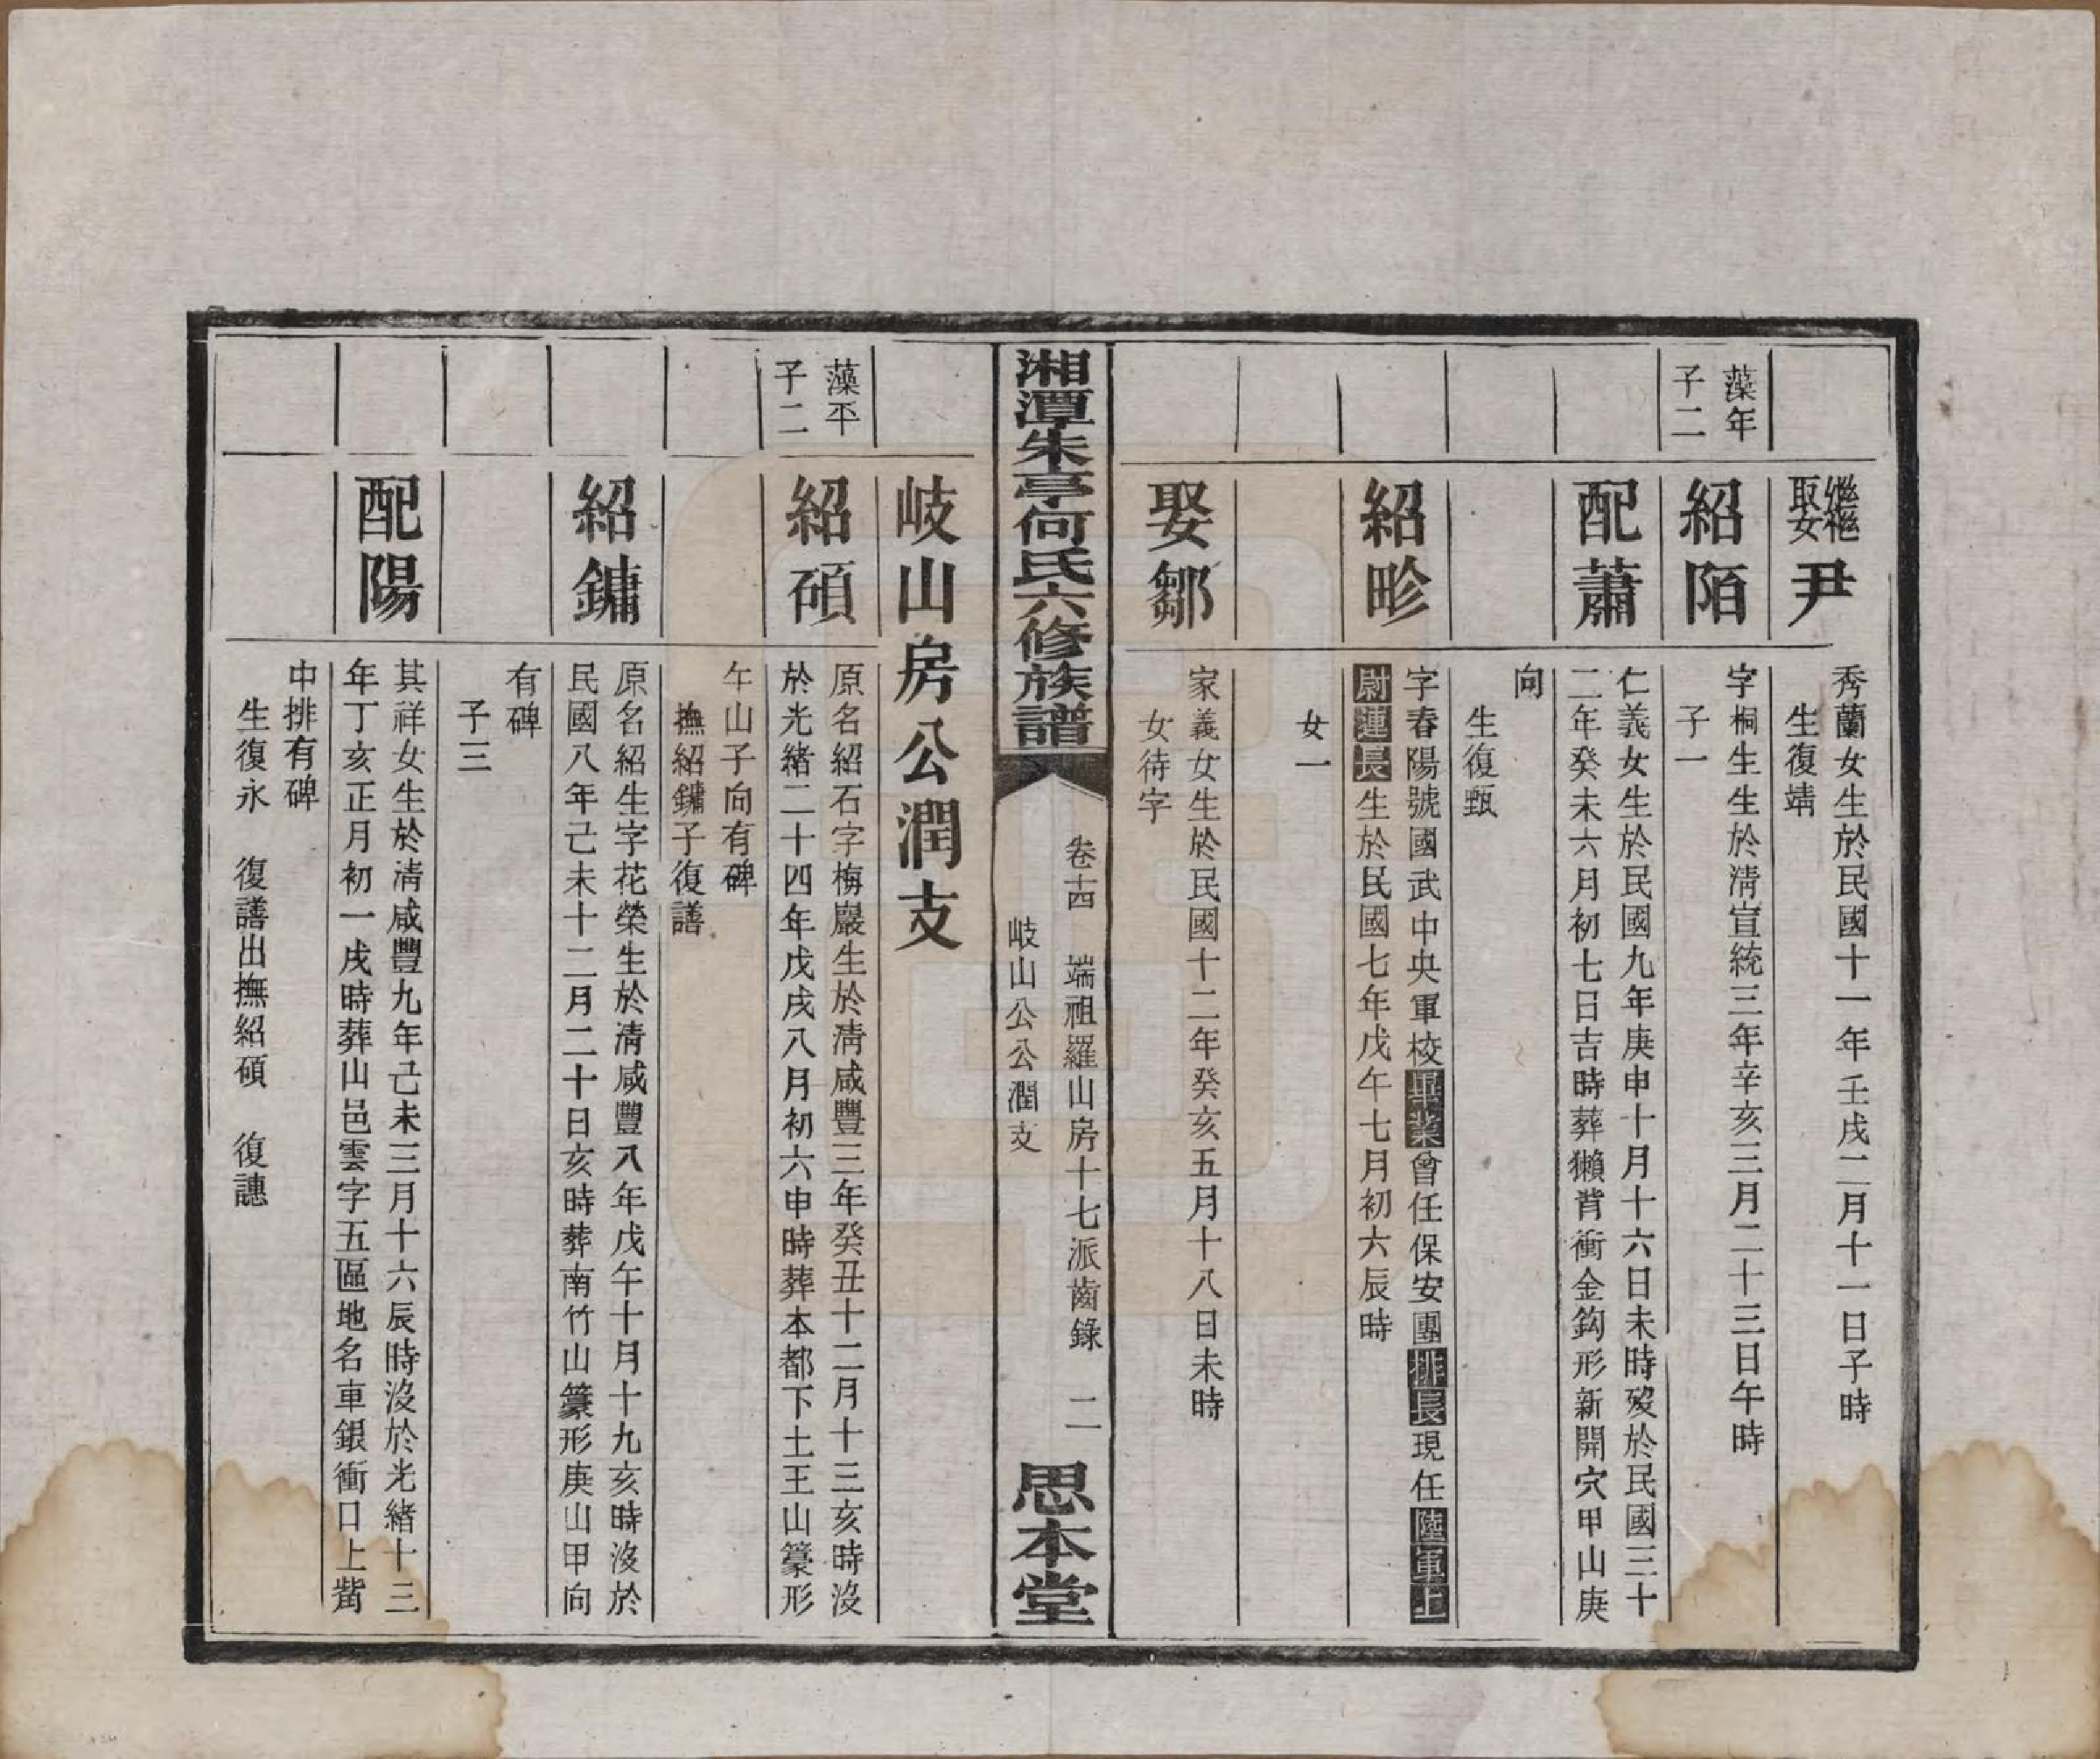 繼娶尹
秀蘭女生於民國十一年壬戌二月十一日子時
生復靖
藻年
子二
紹陌
字桐生生於淸宣統三年辛亥三月二十三日午時
子一
配蕭
仁義女生於民國九年庚申十月十六日未時歿於民國三十
二年癸未六月初七日吉時葬獺背衝金鈎形新開穴甲山庚
向
生復甄
紹畛
字春陽號國武中央軍校畢業曾任保安團排長現任陸軍上
尉連長生於民國七年戊午七月初六辰時
女一
娶鄒
家義女生於民國十二年癸亥五月十八日未時
女待字
湘潭朱亭何氏六修族譜
卷十四 端祖羅山房十七派齒錄 二
岐山公公潤支
思本堂
岐山房公潤支
藻平
子二
紹碩
原名紹石字梅巖生於淸咸豐三年癸丑十二月十三亥時沒
於光緒二十四年戊戌八月初六申時葬本都下土王山籇形
午山子向有碑
撫紹鏞子復譱
紹鏞
原名紹生字花榮生於淸咸豐八年戊午十月十九亥時沒於
民國八年己未十二月二十日亥時葬南竹山籇形庚山甲向
有碑
子三
配陽
其祥女生於淸咸豐九年己未三月十六辰時沒於光緒十三
年丁亥正月初一戌時葬山邑雲字五區地名車銀衝口上觜
中排有碑
生復永 復譱出撫紹碩 復譓